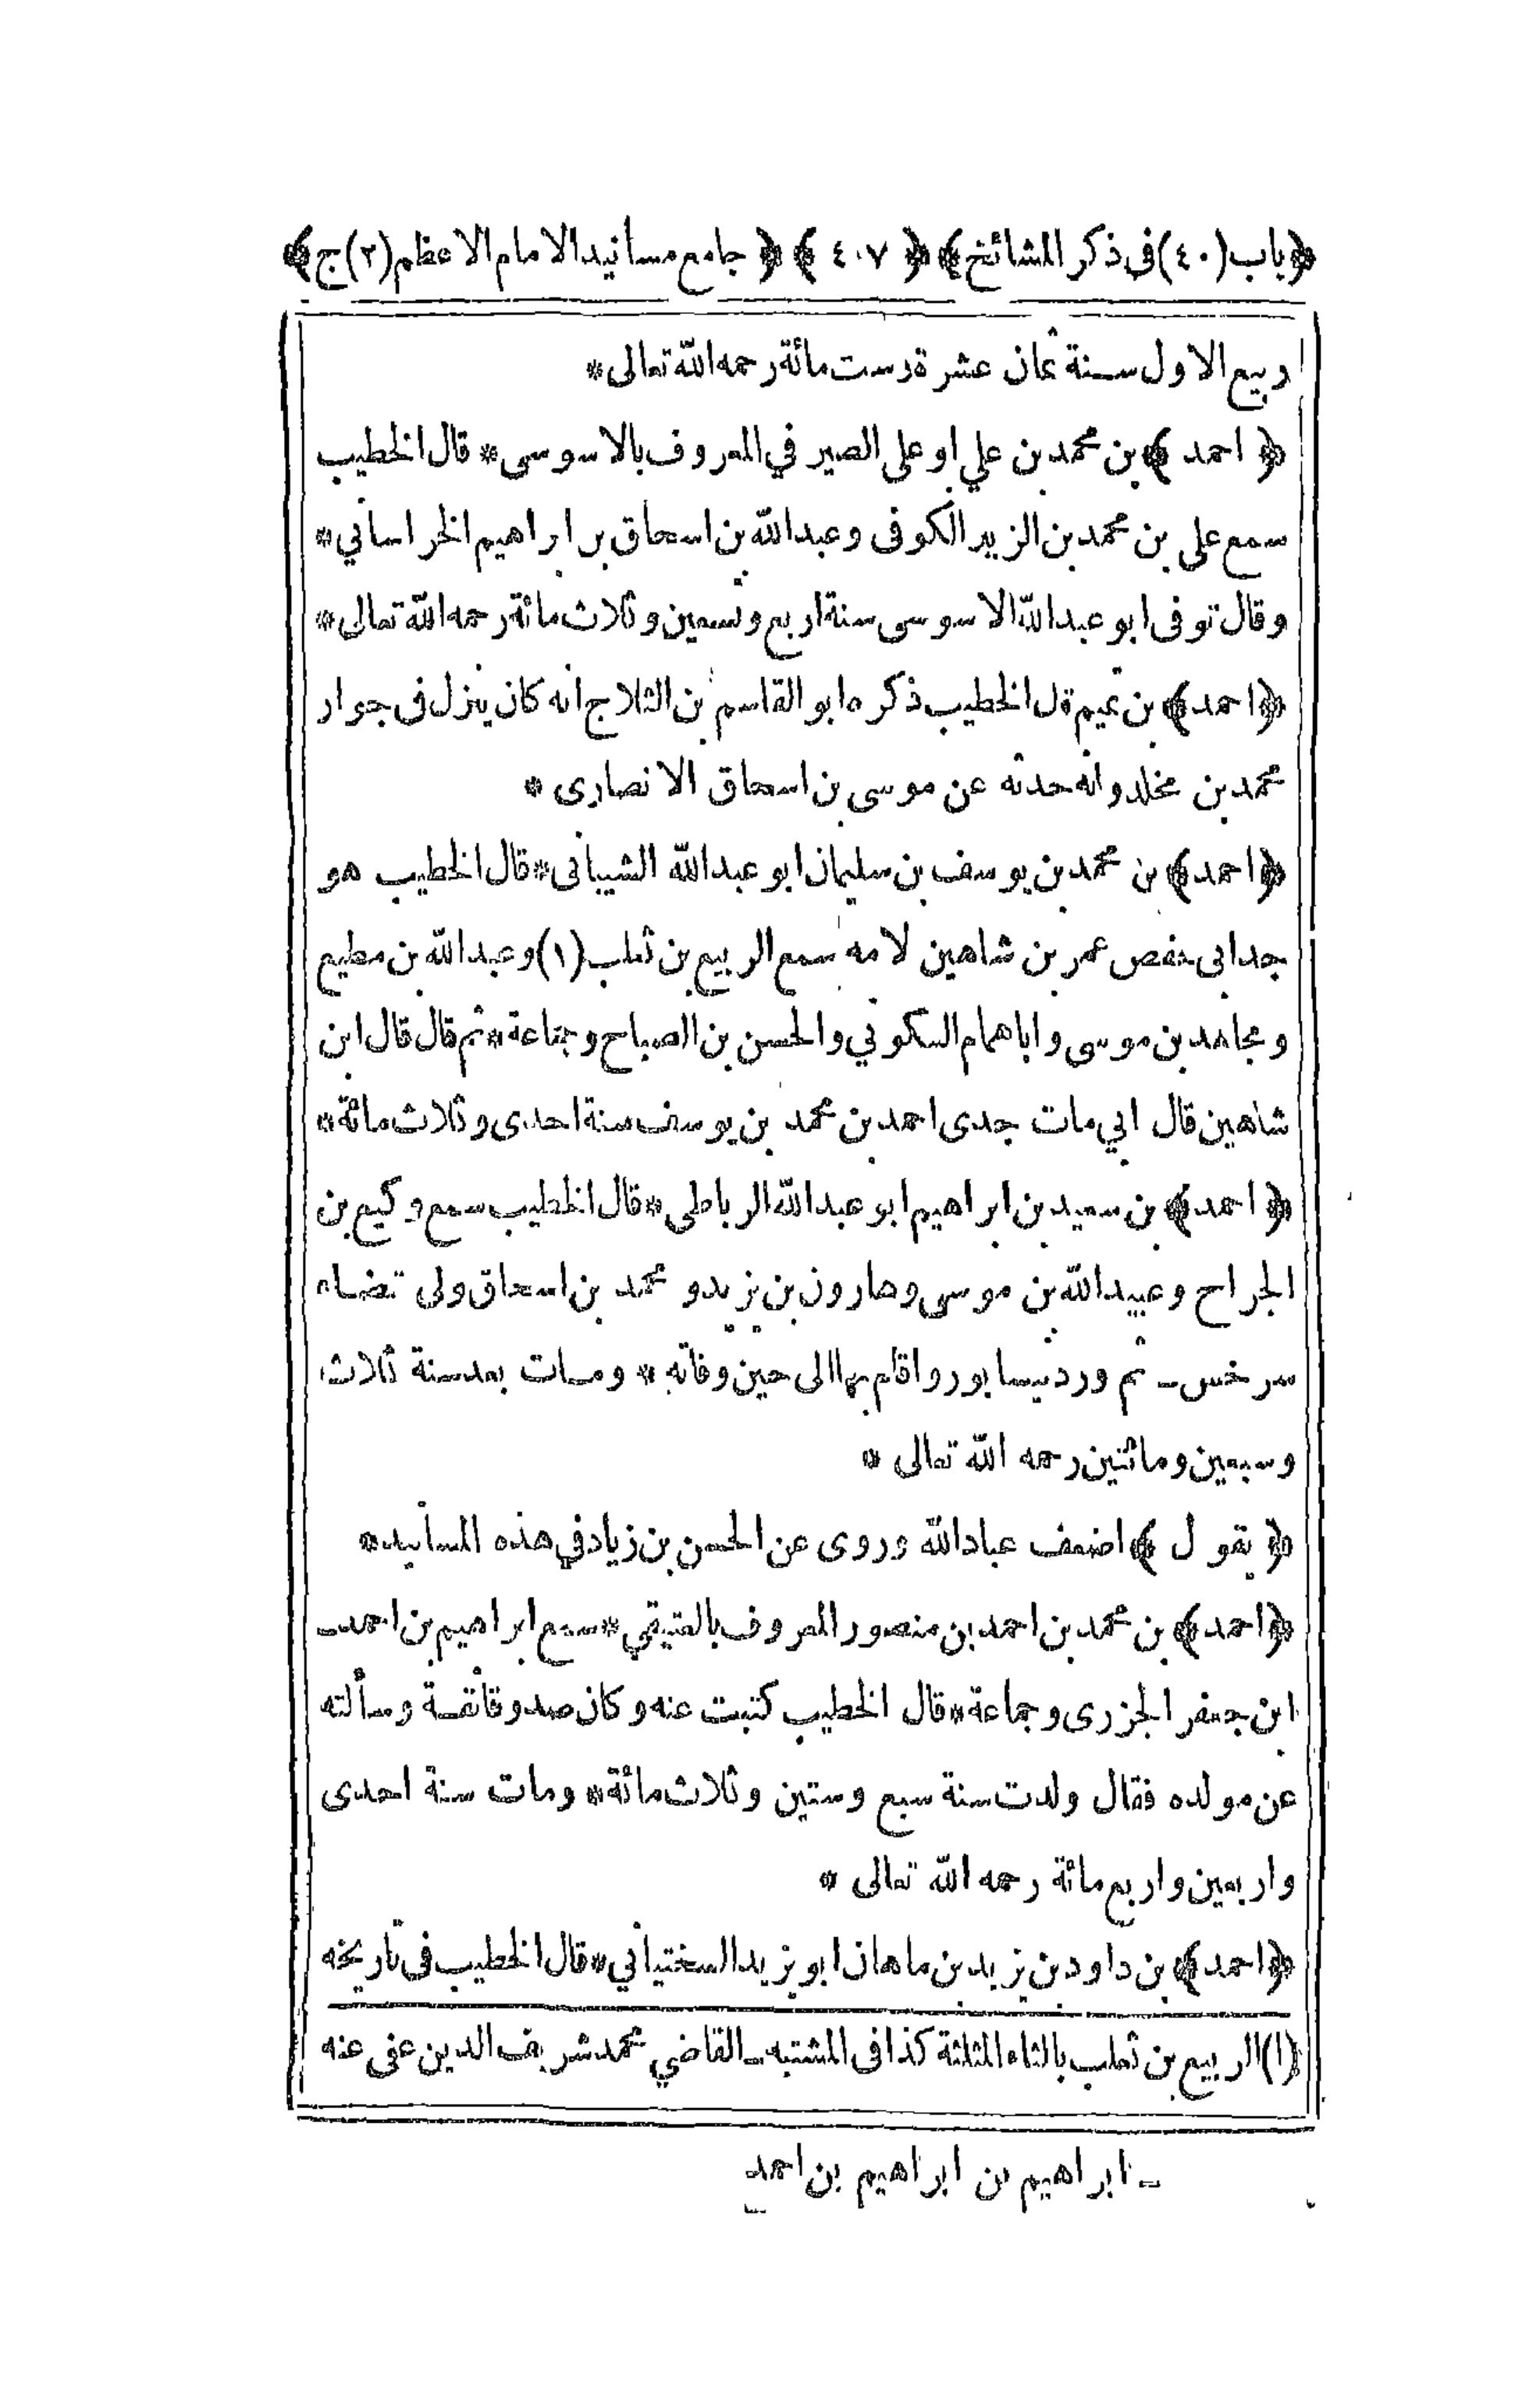 ﴿باب (٤٠) فى ذكر المشائخ﴾ ﴿٤٠٧﴾ ﴿جامع مسانيد الامام الاعظم (٢) ج﴾
ربيع الاول سنة ثمان عشرة وست مائة رحمه الله تعالى *
﴿احمد﴾ بن محمد بن علي ابو على الصير في المعروف بالاسوسى * قال الخطيب
سمع على بن محمد بن الزبير الكوفى وعبدالله بن اسحاق بن ابراهيم الخراساني *
وقال توفى ابو عبدالله الاسوسى سنة اربع وتسعين وثلاث مائة رحمه الله تعالى *
﴿احمد﴾ بن تميم قال الخطيب ذكره ابو القاسم بن الثلاج انه كان ينزل فى جوار
محمد بن مخلد وانه حدثه عن موسى بن اسحاق الانصارى *
﴿احمد﴾ بن محمد بن يوسف بن سليمان ابو عبدالله الشيبانى * قال الخطيب هو
جد ابى حفص عمر بن شاهين لامه سمع الربيع بن ثعلب (١) وعبدالله بن مطيع
ومجاهد بن موسى وابا همام السكوني والحسن بن الصباح وجماعة * ثم قال قال ابن
شاهين قال ابي مات جدى احمد بن محمد بن يوسف سنة احدى وثلاث مائة *
﴿احمد﴾ بن سعيد بن ابراهيم ابو عبدالله الرباطى * قال الخطيب سمع وكيع بن
الجراح وعبيدالله بن موسى وهارون بن يزيد و محمد بن اسحاق ولى قضاء
سرخس ـ ثم ورد نيسابور واقام بها الى حين وفاته * ومات بعد سنة ثلاث
وسبعين ومائتين رحمه الله تعالى *
﴿يقول﴾ اضعف عبادالله وروى عن الحسن بن زياد في هذه المسانيد *
﴿احمد﴾ بن محمد بن احمد بن منصور المعروف بالعتيقي * سمع ابراهيم بن احمد ـ
ابن جعفر الجزرى وجماعة * قال الخطيب كتبت عنه وكان صدوقا ثقة وسألته
عن مولده فقال ولدت سنة سبع وستين وثلاث مائة * ومات سنة احدى
واربعين واربع مائة رحمه الله تعالى *
﴿احمد﴾ بن داود بن يزيد بن ماهان ابو يزيد السختياني * قال الخطيب فى تاريخه
(١) الربيع بن ثعلب بالثاء المثلثة كذا فى المشتبه ـ القاضي محمد شريف الدين عفى عنه
ـ ابراهيم بن ابراهيم بن احمد